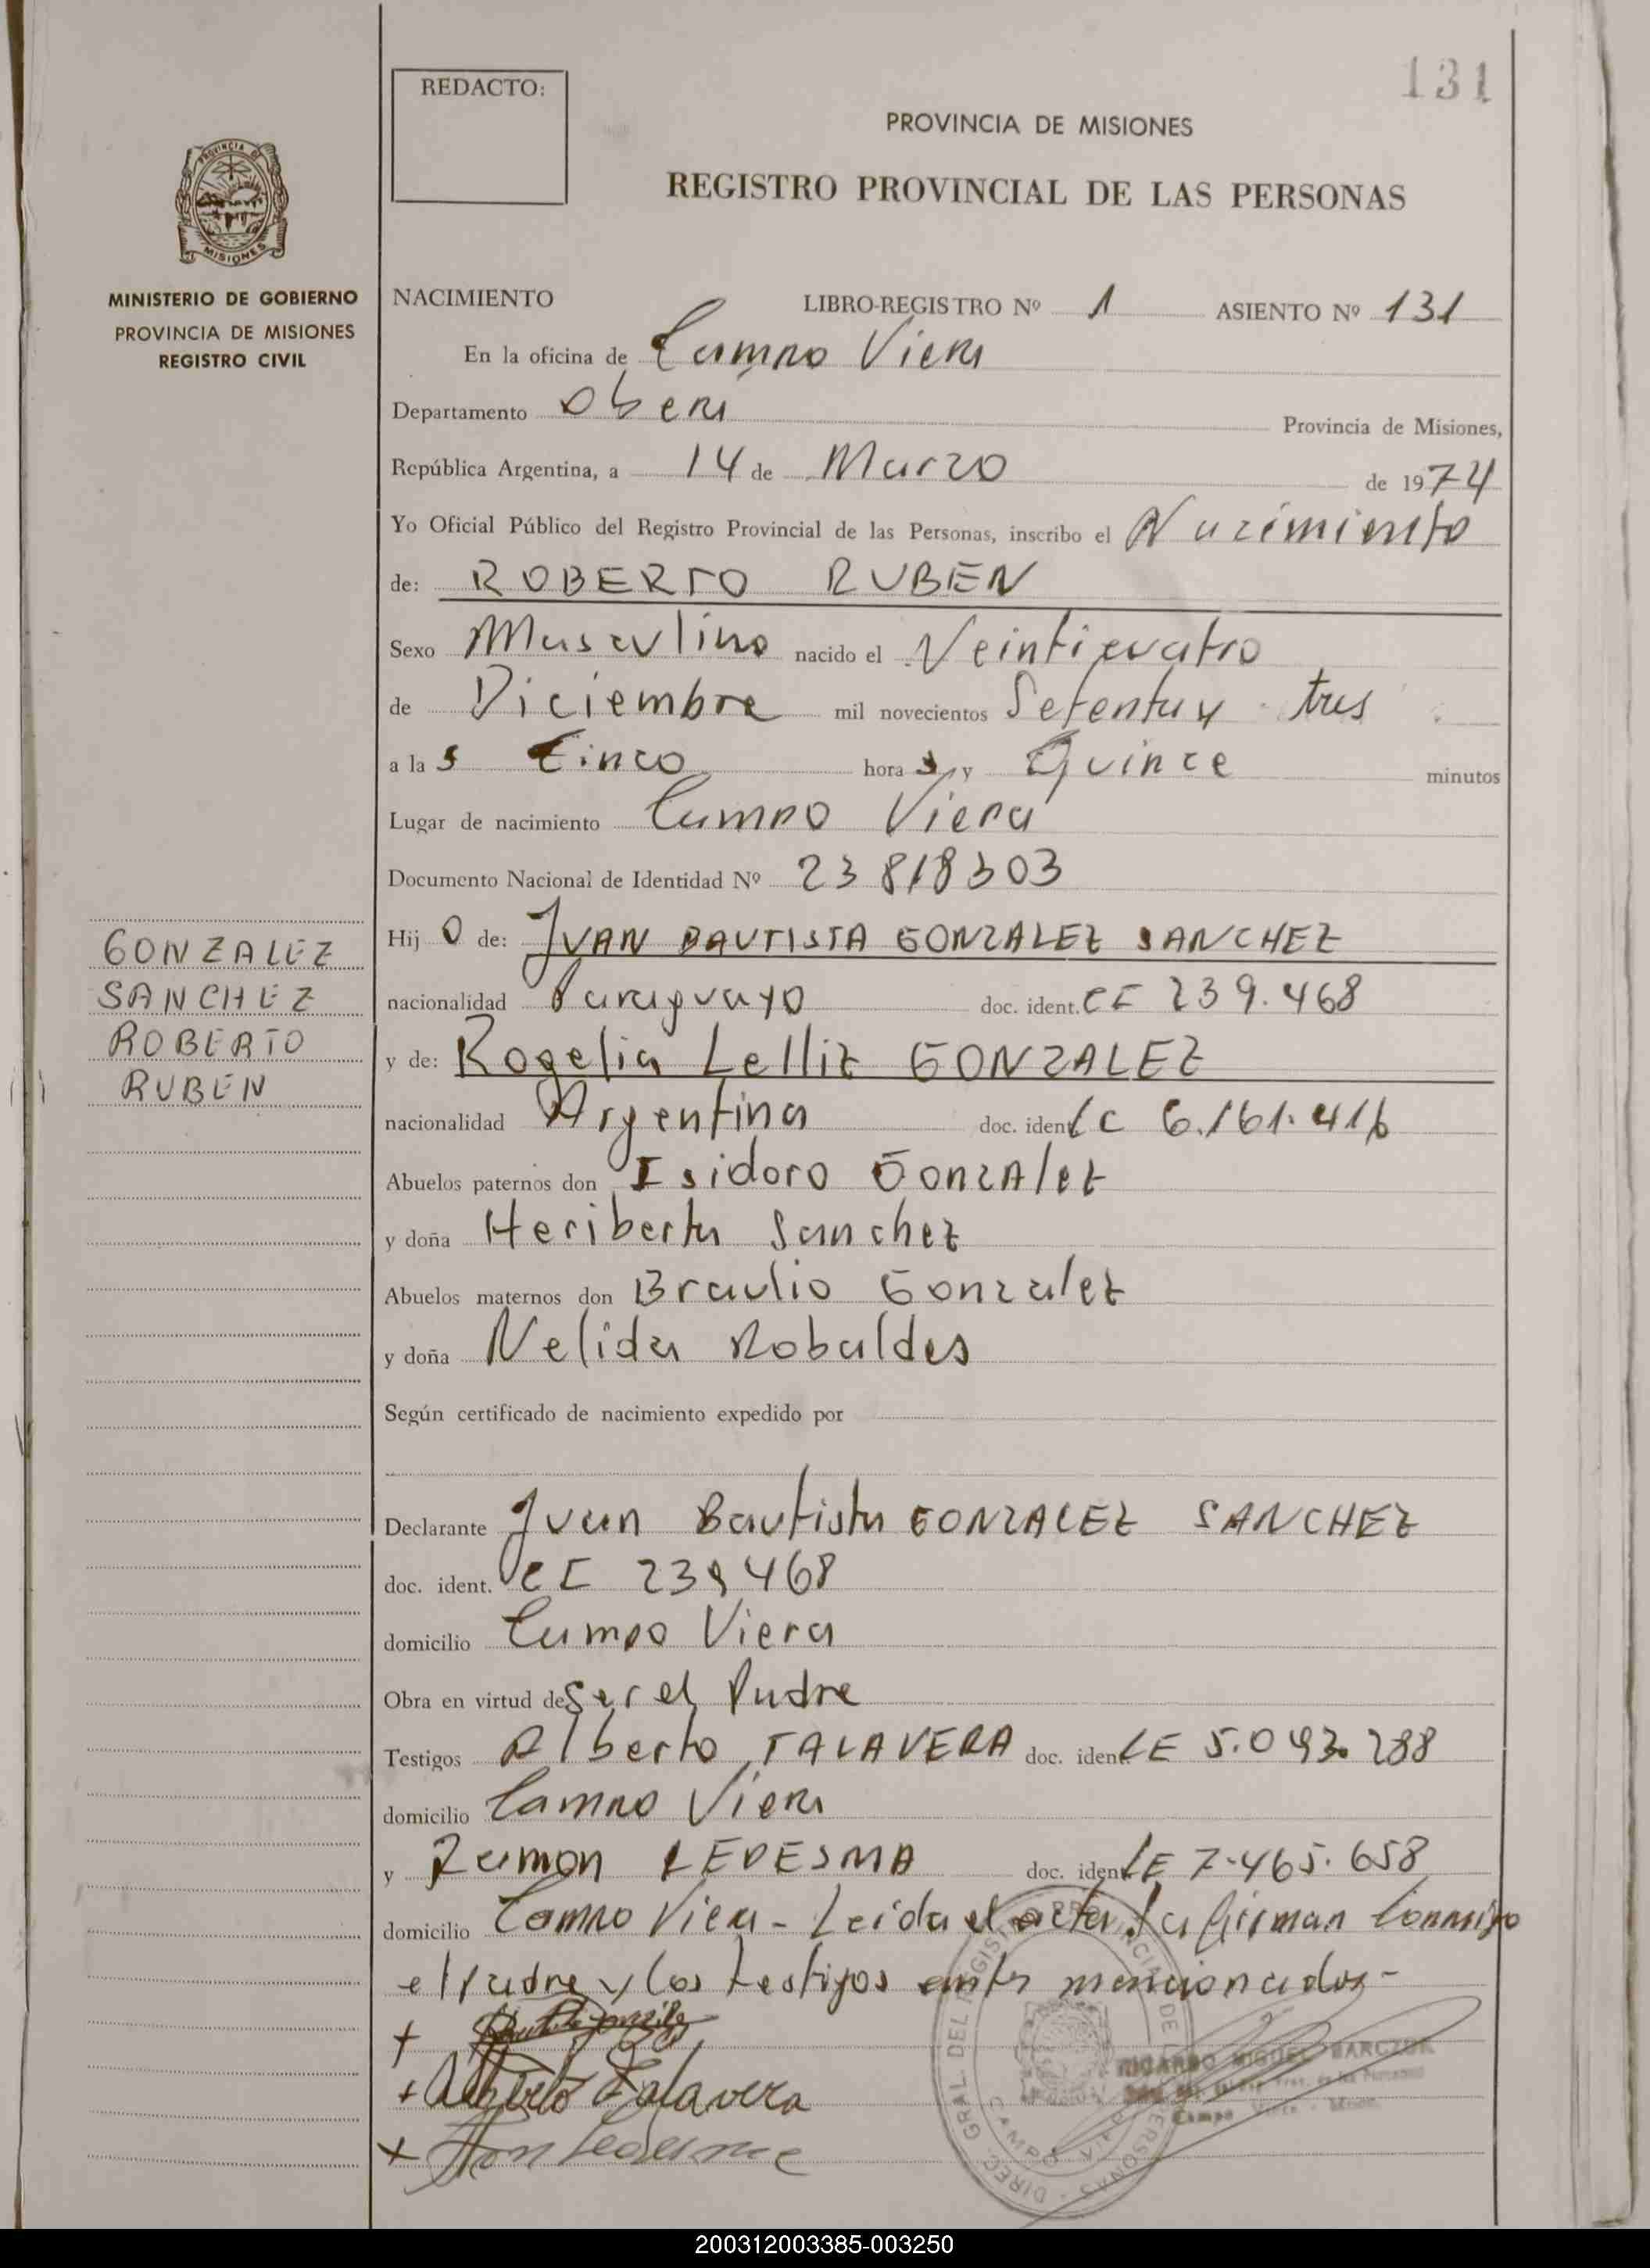 131
REDACTO:
PROVINCIA DE MISIONES
REGISTRO PROVINCIAL DE LAS PERSONAS
PROVINCIA DE
MISIONES
MINISTERIO DE GOBIERNO
PROVINCIA DE MISIONES
REGISTRO CIVIL
NACIMIENTO LIBRO-REGISTRO Nº 1 ASIENTO Nº 131
En la oficina de Campo Viera
Departamento Obera Provincia de Misiones,
República Argentina, a 14 de Marzo de 1974
Yo Oficial Público del Registro Provincial de las Personas, inscribo el Nacimiento
de: ROBERTO RUBEN
Sexo Masculino nacido el Veinticuatro
de Diciembre mil novecientos Setenta y tres
a la s Cinco hora s y Quince minutos
Lugar de nacimiento Campo Viera
Documento Nacional de Identidad Nº 23818303
GONZALEZ
SANCHEZ
ROBERTO
RUBEN
Hij o de: JUAN BAUTISTA GONZALEZ SANCHEZ
nacionalidad Paraguayo doc. ident. CI 239.468
y de: Rogelia Lelliz GONZALEZ
nacionalidad Argentina doc. ident. LC 6.161.416
Abuelos paternos don Isidoro GonzAlez
y doña Heriberta Sanchez
Abuelos maternos don Braulio Gonzalez
y doña Nelida Robaldes
Según certificado de nacimiento expedido por
Declarante Juan Bautista GONZALEZ SANCHEZ
doc. ident. CI 239468
domicilio Campo Viera
Obra en virtud de Ser el Padre
Testigos Alberto TALAVERA doc. ident. LE 5.093.288
domicilio Campo Viera
y Ramon LEDESMA doc. ident. LE 7.465.658
domicilio Campo Viera - Leida el acta la firman conmigo
el padre y los testigos antes mencionados-
+
+ Alberto Talavera
+
RICARDO MIGUEL
Campo Viera - Misiones
DIREC. GRAL. DEL REGISTRO PROVINCIAL DE PERSONAS
CAMPO VIERA
200312003385-003250